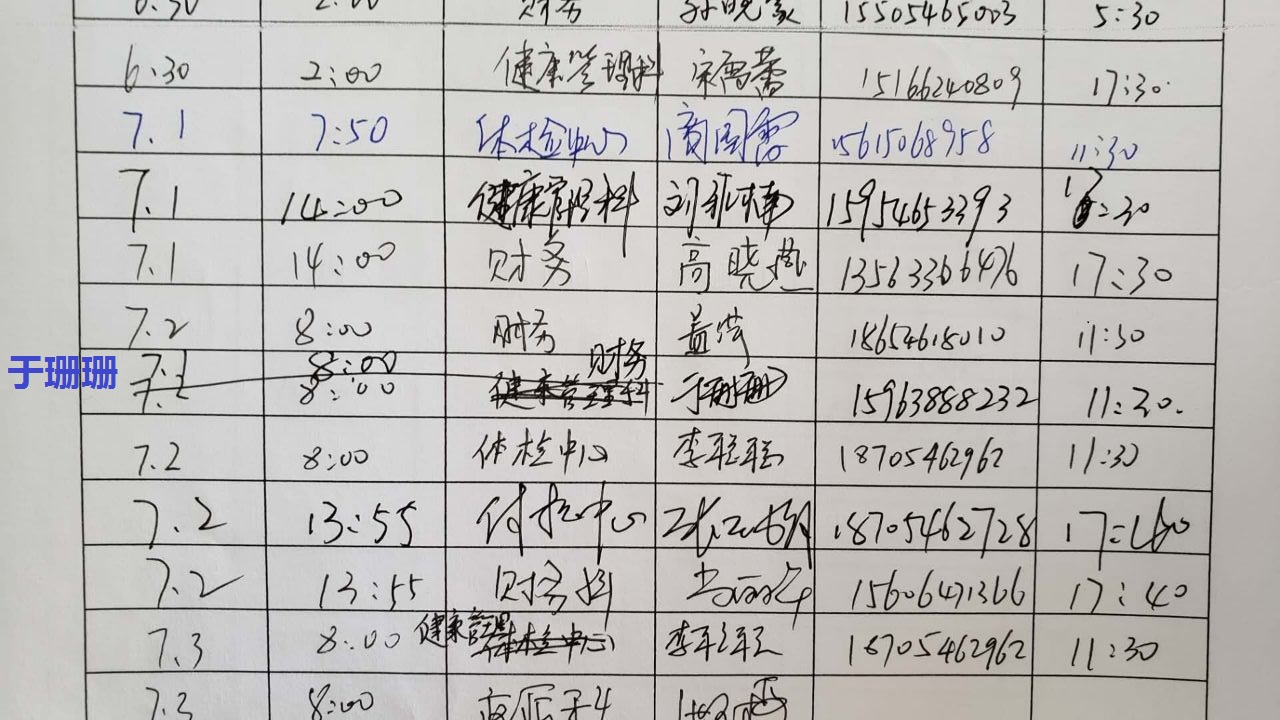 6.30 2:00 财务 孙晓蒙 15505465003 5:30
6.30 2:00 健康管理科 宋雪蕾 15166240809 17:30
7.1 7:50 体检中心 商国雪 15615068958 11:30
7.1 14:00 健康管理科 刘菲楠 15954653393 17:30
7.1 14:00 财务 高晓燕 13563366476 17:30
7.2 8:00 财务 盖倩 18654618010 11:30
于珊珊 7.2 8:00 财务
7.2 8:00 健康管理科 于珊珊 15963888232 11:30.
7.2 8:00 体检中心 李聪聪 18705462962 11:30
7.2 13:55 体检中心 18705462728 17:40
7.2 13:55 财务科 15606471366 17:40
7.3 8:00 健康管理 体检中心 李聪聪 18705462962 11:30
7.3 8:00